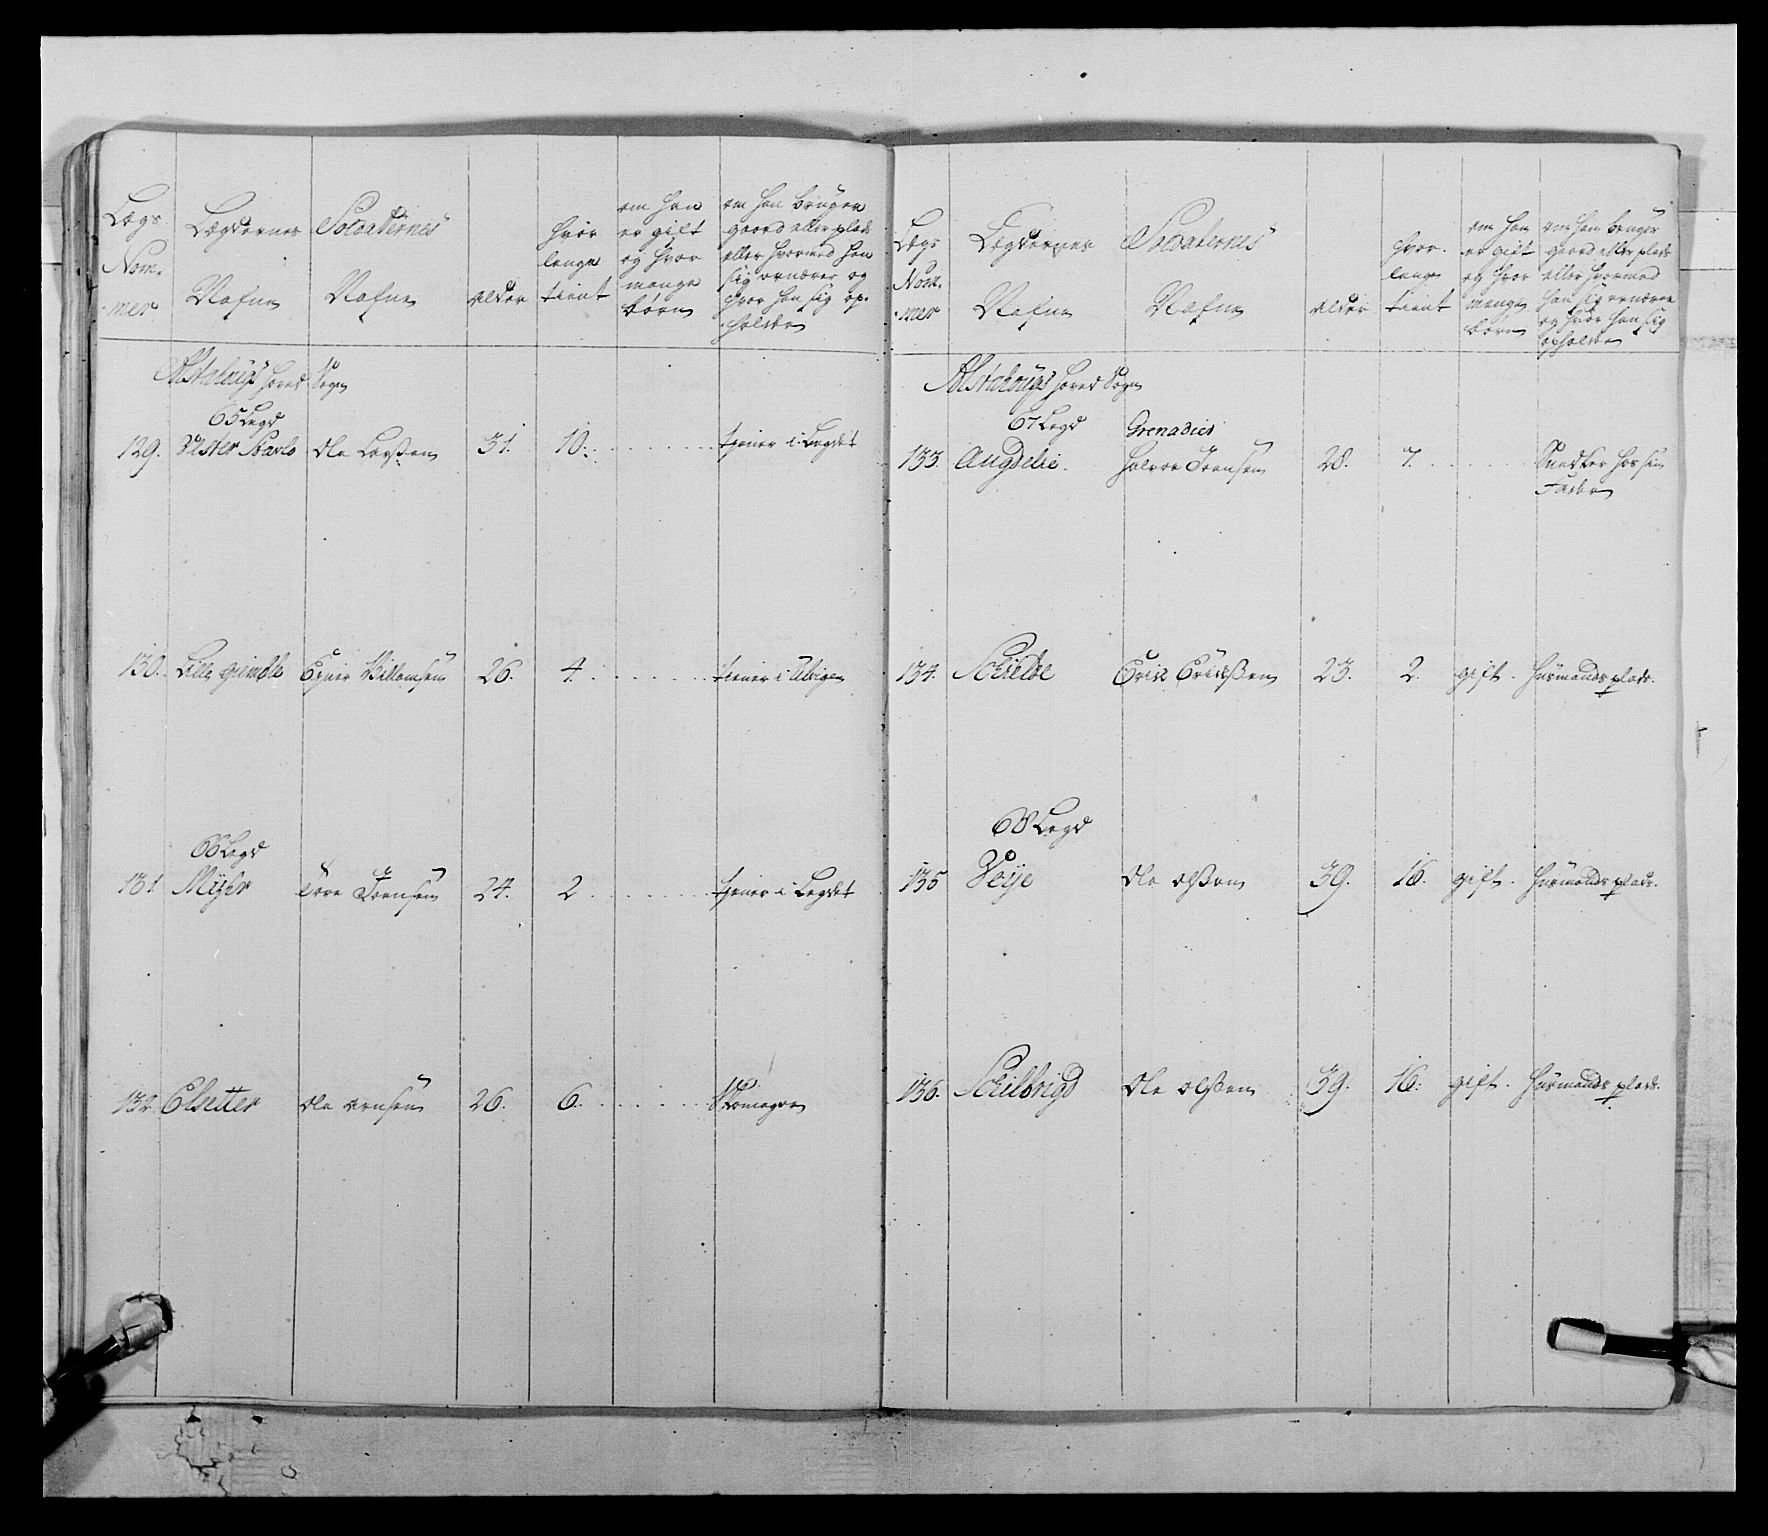 Lægs Nom- mer
Lægdernes Nafne
Soldaternes Nafne
alder
hvor lenge tient
om han er gift og hvor mange børn
om han bruger gaard eller plads eller hvormed han sig ernærer og hvor han sig op- holder
Alstahougs hoved Sogn
65 Legd
129. Vester Karls Ole Larssen 31. 10. tjener i Legdet
130. Lille Gimble Egner Villomsen 26. 4. tiener i
66 Legd
131 Myhr Tore Joensen 24. 2 tjener i Legdet
132 Elsetter Ole Arnsen 26. 6. Skomager
Lægs Nom- mer
Lægdernes Nafne
Soldaternes Nafne
alder
hvor lenge tient
om han er gift og hvor mange børn
om han bruger gaard eller plads eller hvormed han sig ernærer og hvor han sig opholder
Alstahougs hoved Sogn
67 Legd Grenadier
133. Augdelie Halvor Joensen 28. 7. Snedker hos sin
Fader
134. Schielde Erik Erichssen 23. 2. gift. huusmands plads.
68 Legd
135 Veije Ole Olssen 39. 16. gift. huusmands plads.
136. Schielbrigd Ole Olssen 39. 16. gift. huusmands plads.